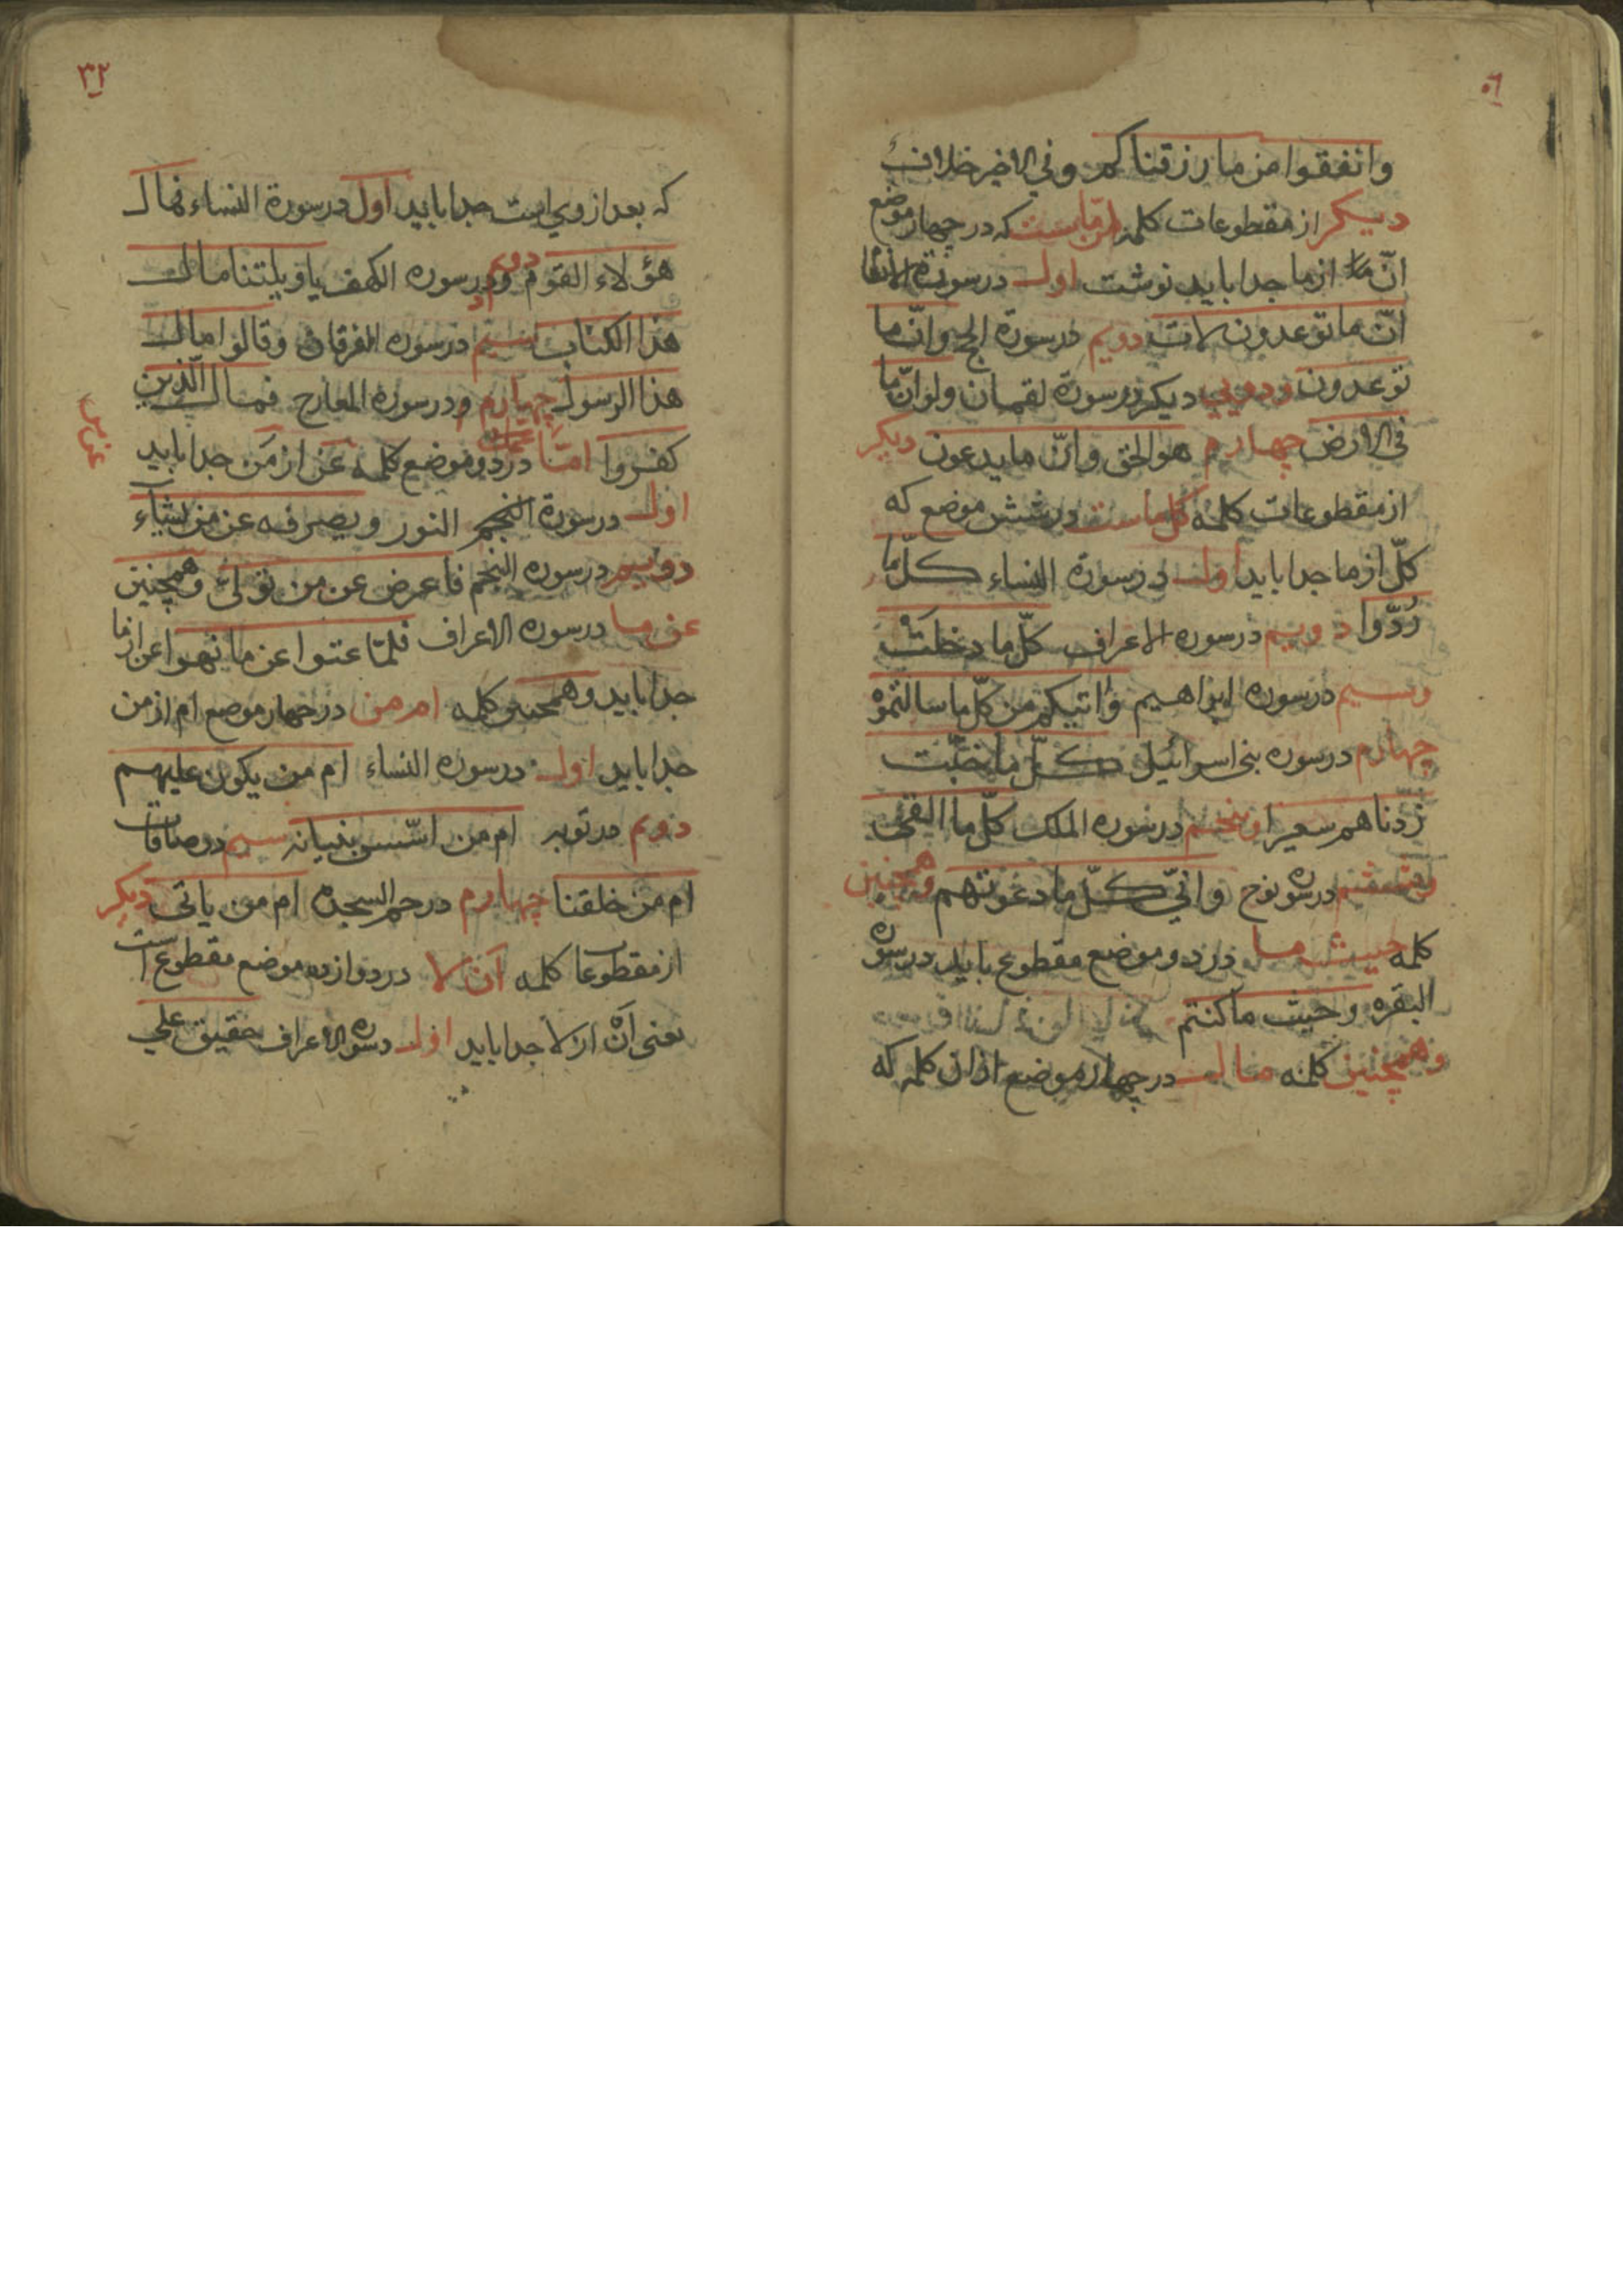 وانفقوا من ما رزقناكم وفي الاخير خلاف
ديكر از مقطوعات كلمه انّ ما ست كه در چهار موضع
انّ ما از ما جدا بايد نوشت اول در سورة الانعا
انّ ما توعدون لات دويم در سورة الحج وانّ ما
توعدون ديكر در سورة لقمان ولو انّ ما
في الارض چهارم هو الحق وانّ ما يدعون ديكر
از مقطوعات كلمه كل ماست در شش موضع كه
كلّ از ما جدا بايد اول در سورة النساء كلّ ما
رُدّوا دويم در سوره الاعراف كلّ ما دخلت
وسيم در سوره ابراهيم واتيكم من كلّ ما سالتموْ
چهارم در سوره بنى اسرائيل كلّ ما خبّت
زدناهم سعيرا وپنجم در سوره الملك كلّ ما القى
وششم در سوره نوح وانّي كلّ ما دعوتهم وهمچنين
كلمه حيث ما در دو موضع مقطوع بايد در سوره
البقره وحيث ما كنتم
وهمچنين كلمه مال در چهار موضع از ان كلمه كه
٣٢
كه بعد از وي است جدا بايد اول در سورة النساء فمال
هؤلاء القوم دويم ودر سوره الكهف ياويلتنا مال
هذا الكتاب سيم در سوره الفرقان وقالوا مال
هذا الرسول چهارم ودر سورة المعارج فمال الّذين
كفروا امّا عن من در دو موضع كلمه عن از مَن جدا بايد
اول در سورة النجم النور ويصرفه عن من يشاء
دويم در سوره النجم فاعرض عن من تولى وهمچنين
عن ما در سوره الاعراف فلمّا عتوا عن ما نهوا عن از ما
جدا بايد وهمچنين كلمه ام من در چهار موضع ام از من
جدا بايد اول در سوره النساء ام من يكون عليهم
دويم در توبه ام من اسّس بنيانه سيم در صافات
ام من خلقنا چهارم در حم السجده ام من ياتى ديكر
از مقطوعات كلمه ان لا در دوازده موضع مقطوع است
يعنى اَنْ از لا جدا بايد اول در سوره الاعراف حقيق على